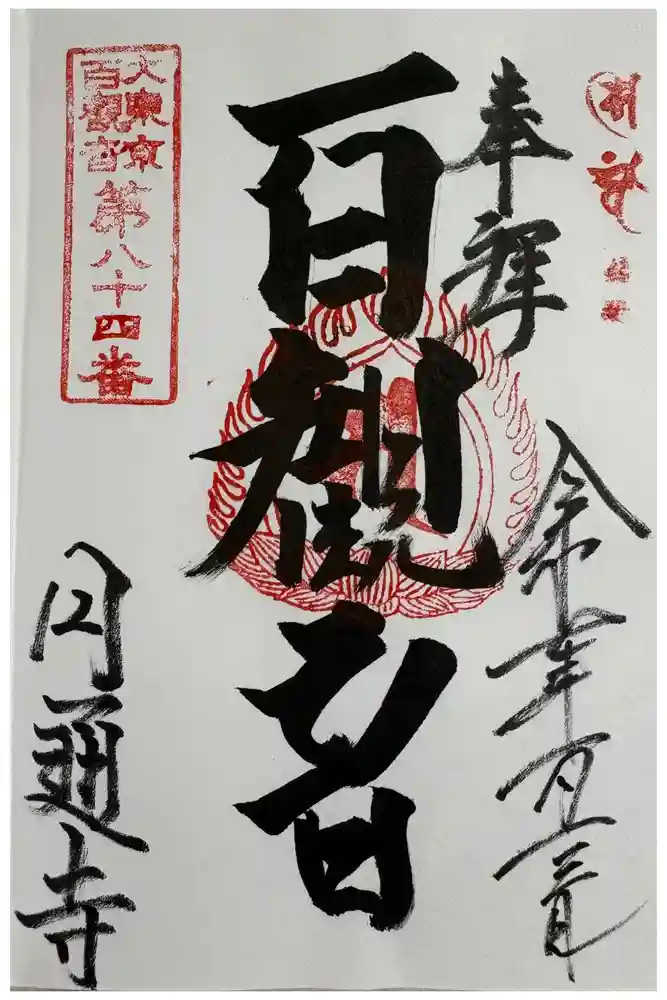 奉拝
令和 年 月 日
百観音
大東京
百觀音
第八十四番
円通寺